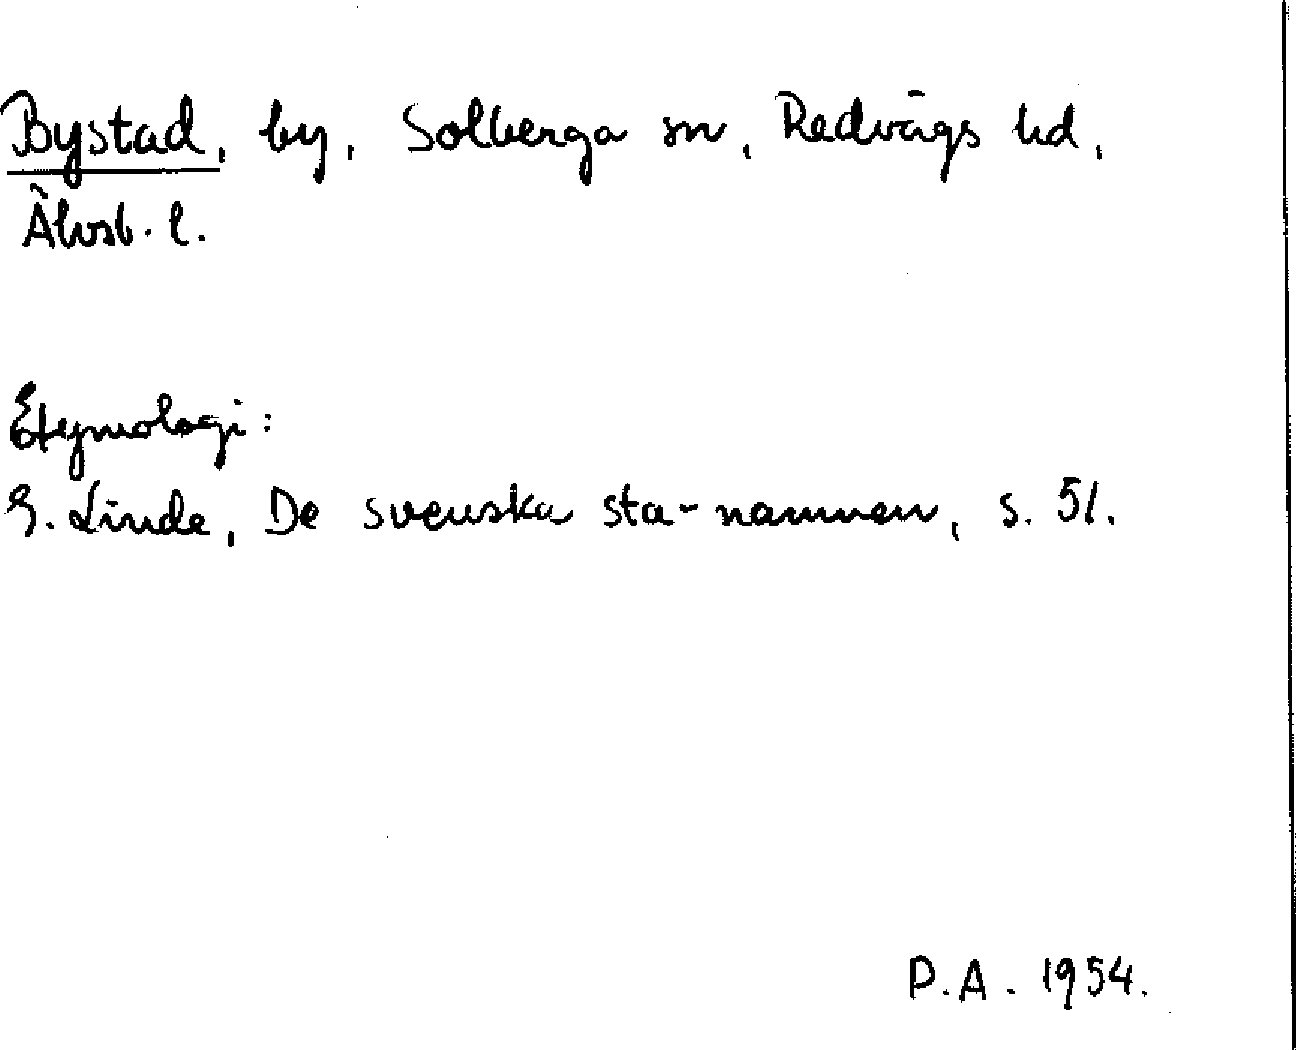 Bystad, by, Solberga sn, Redvägs hd,
Älvsb. l.
Etymologi:
G. Linde, De svenska sta-namnen, s. 51.
P.A. 1954.